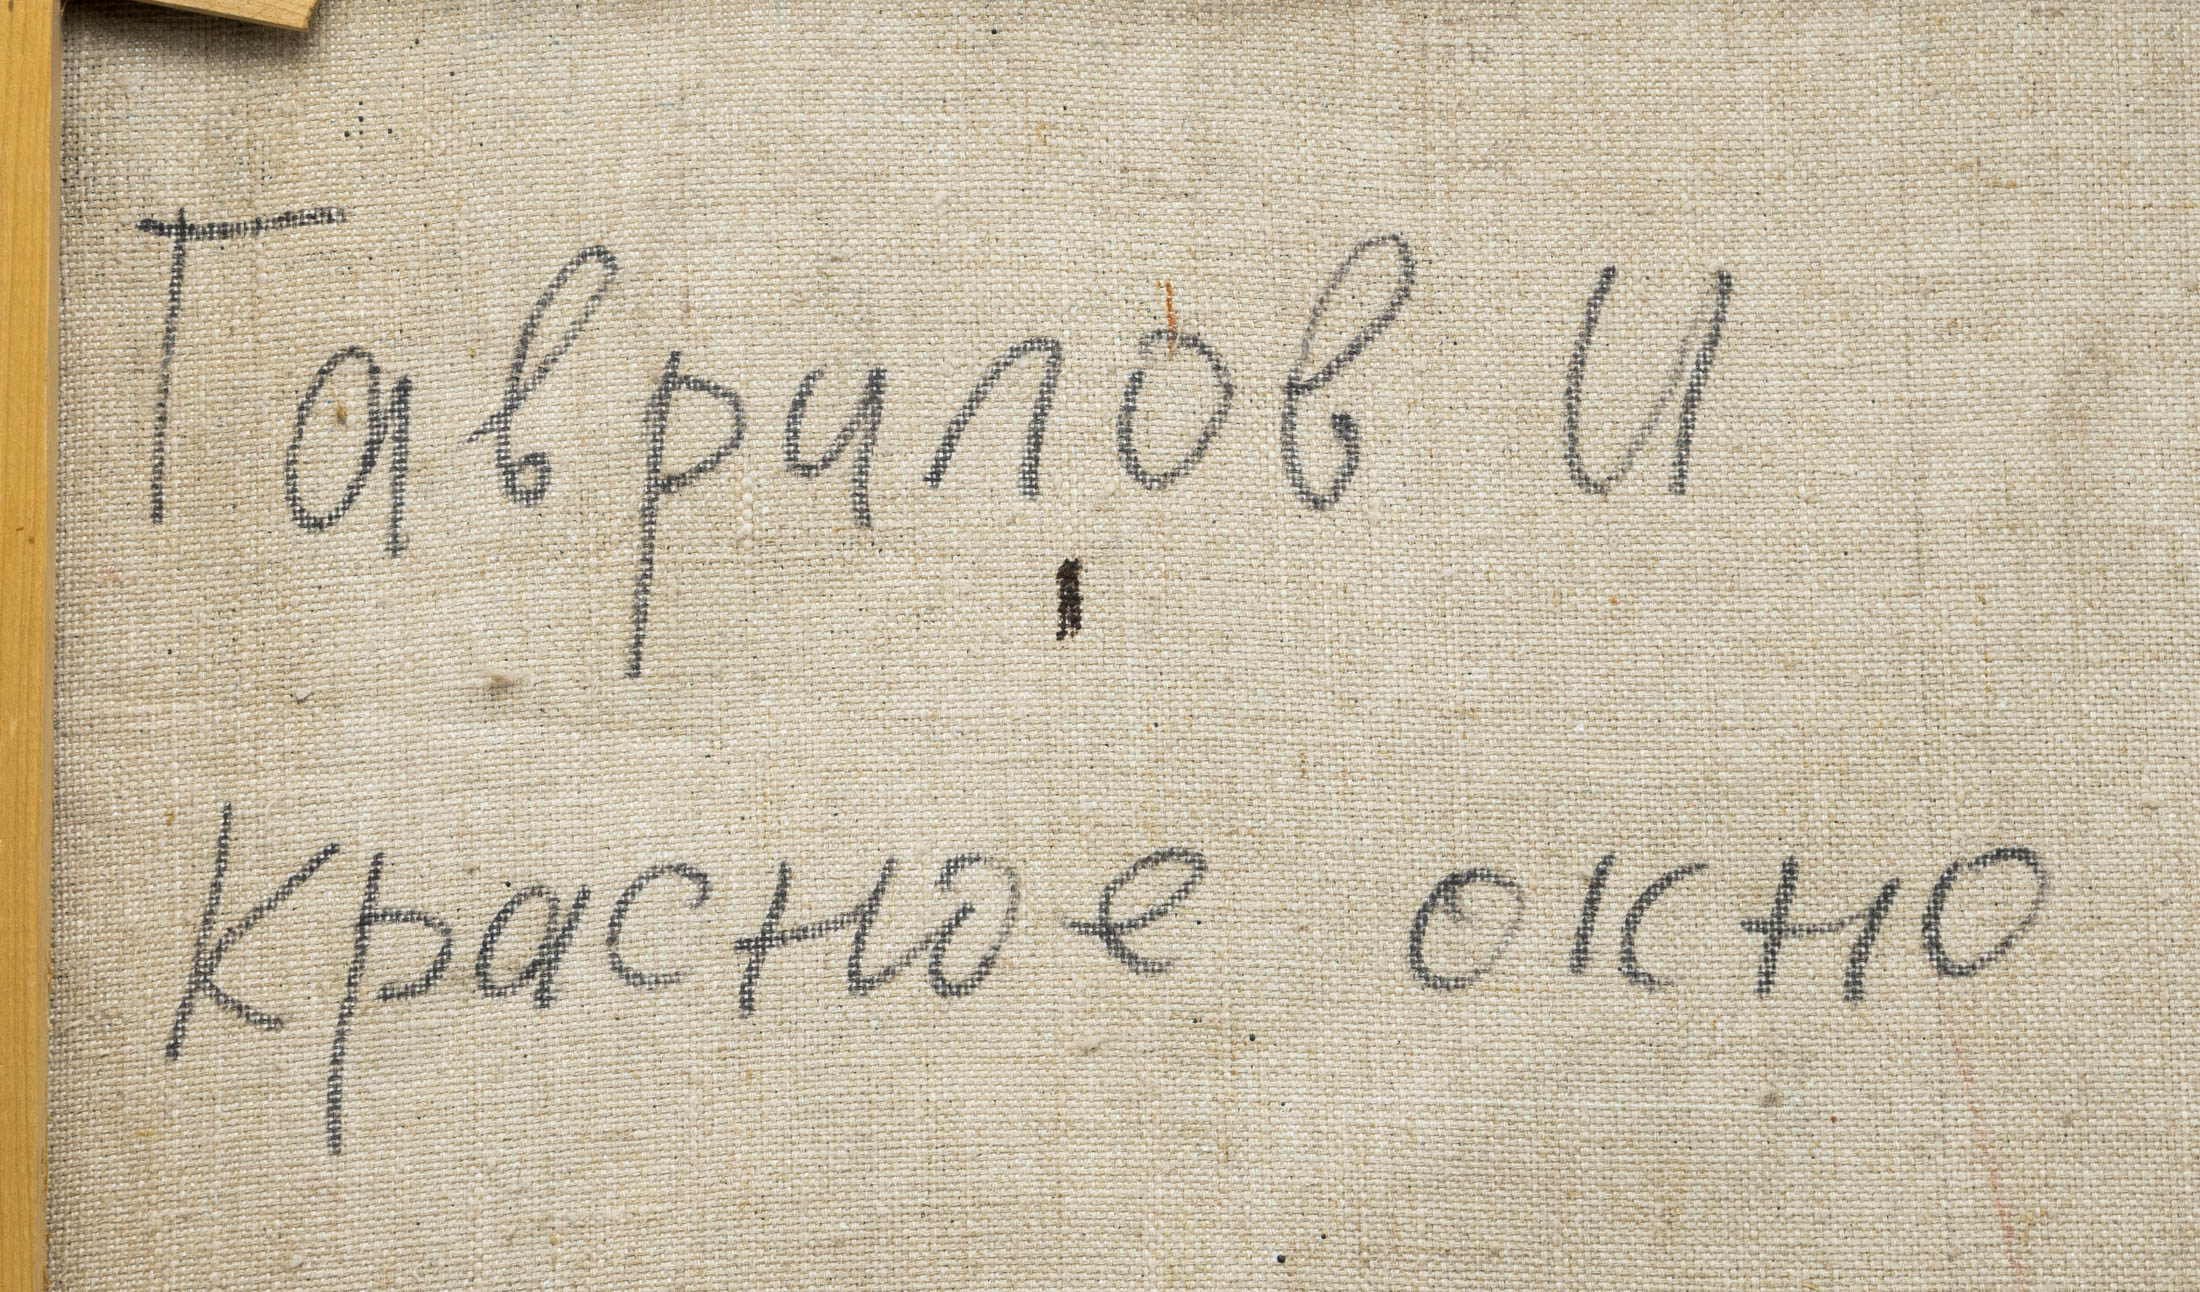 Гаврилов И
Красное окно